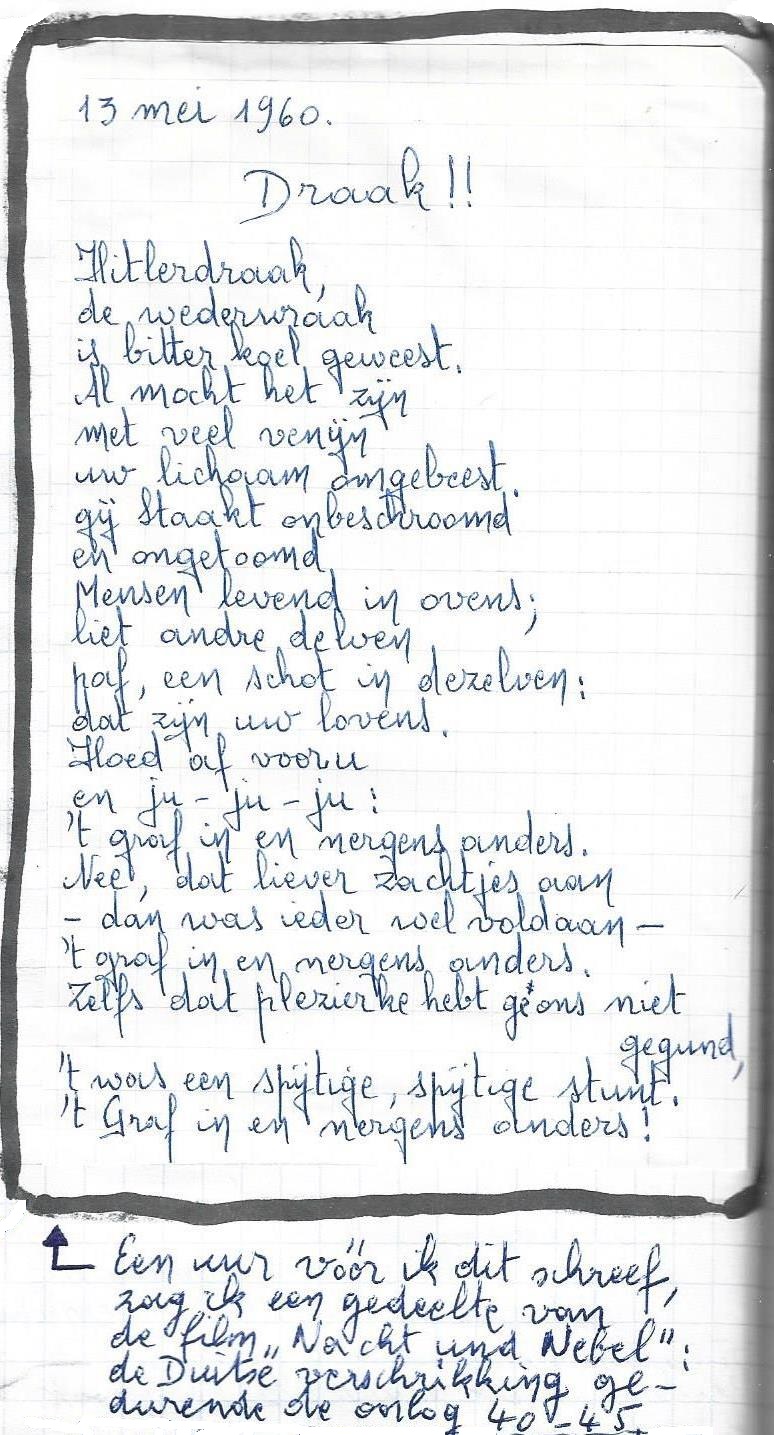 13 mei 1960.
Draak!!
Hitlerdraak,
de wederwraak
is bitter koel geweest.
Al mocht het zijn
met veel venijn
uw lichaam omgebeest.
gij staakt onbeschroomd
en ongetoomd
Mensen levend in ovens;
liet andre delven
paf, een schot in dezelven:
dat zijn uw lovens.
Hoed af voor u
en ju - ju - ju:
't graf in en nergens anders.
Nee, dat liever zachtjes aan
- dan was ieder wel voldaan -
't graf in en nergens anders.
Zelfs dat plezierke hebt ge ons niet
gegund,
't was een spijtige, spijtige stunt.
't Graf in en nergens anders!
Een uur vóór ik dit schreef,
zag ik een gedeelte van
de film „Nacht und Nebel":
de Duitse verschrikking ge-
durende de oorlog 40-45.